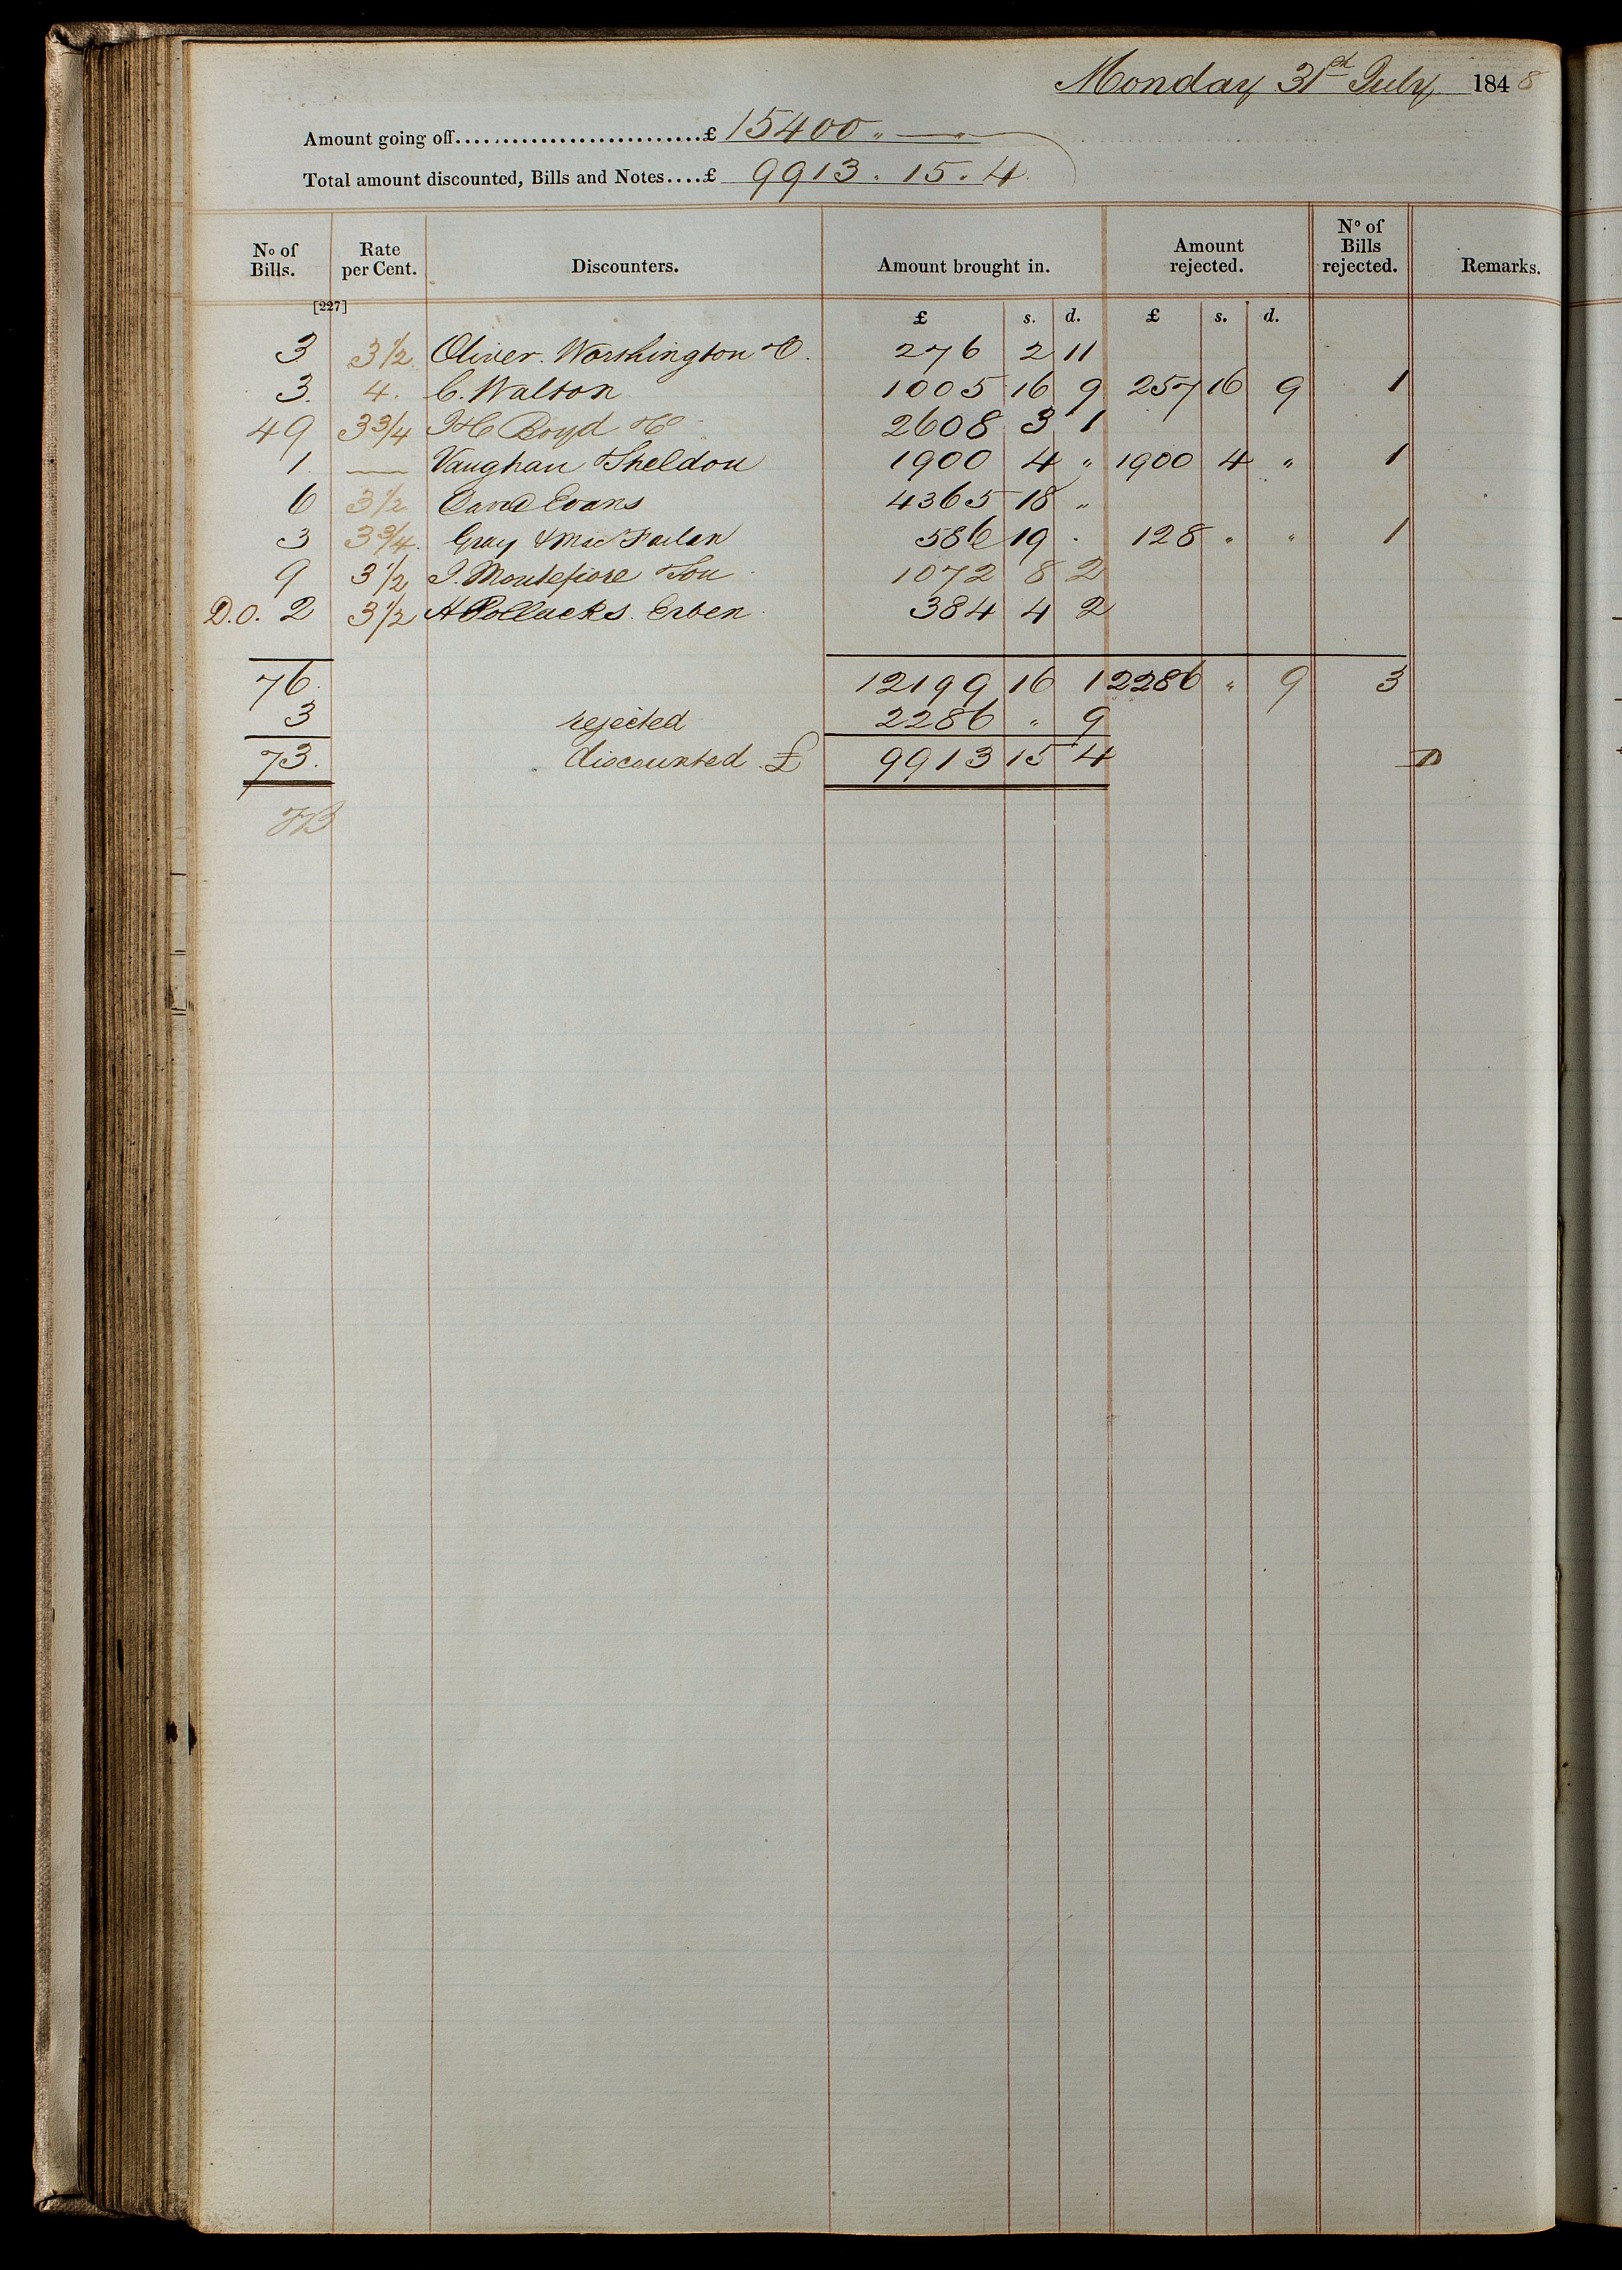 Monday 31st July 1848
Amount going off..........................£ 15400 " — "
Total amount discounted, Bills and Notes....£ 9913. 15. 4
No of Bills. Rate per Cent. Discounters. Amount brought in. Amount rejected. No of Bills rejected. Remarks.
[227]
£ s. d. £ s. d.
3 3 1/2 Oliver. Worthington & Co. 276 2 11
3. 4. C. Walton 1005 16 9 257 16 9 1
49 3 3/4 Boyd & Co 2608 3 1
1 — Vaughan & Sheldon 1900 4 " 1900 4 " 1
6 3 1/2 David Evans 4365 18 "
3 3 3/4. Gray & MacFarlan 586 19 . 128 " " 1
9 3 1/2 J. Montefiore & Son 1072 8 2
D.O. 2 3 1/2 A Pollacks. Erben 384 4 2
76. 12199 16 1 2286 " 9 3
3 rejected 2286 " 9
73. discounted £ 9913 15 4